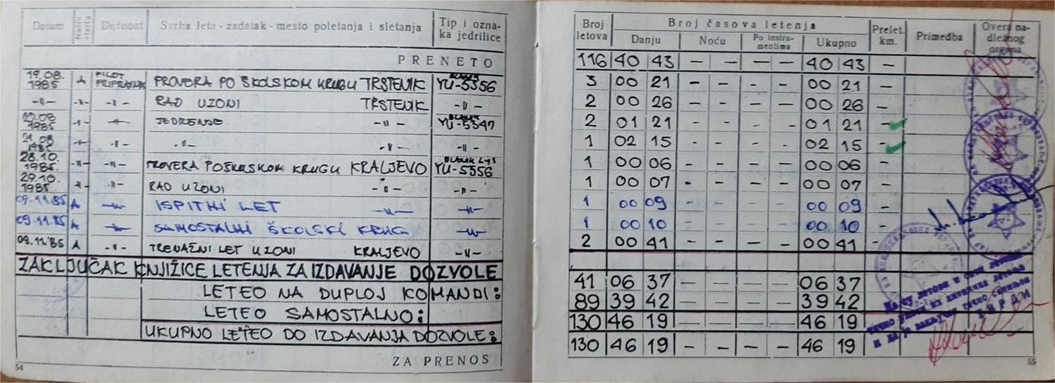 Datum Način starta Dužnost Svrha leta - zadatak - mesto poletanja i sletanja Tip i oznaka jedrilice
PRENETO
19.08.1985 A PILOT PRIPRAVNIK PROVERA PO ŠKOLSKOM KRUGU TRSTENIK YU-5356
-"- -"- -"- RAD U ZONI TRSTENIK -"-
1985 -"- JEDRENJE -"- YU-5347
21.08 1985 -"- -"- -"-
28.10. 1985. -"- -"- PROVERA PO ŠKOLSKOM KRUGU KRALJEVO YU-5356
29.10. 1985 -"- -"- RAD U ZONI -"- -"-
09.11.85 A -"- ISPITNI LET -"- -"-
09.11.85 A -"- SAMOSTALNI ŠKOLSKI KRUG -"- -"-
09.11.85 A -"- TRENAŽNI LET U ZONI KRALJEVO -"-
ZAKLJUČAK KNJIŽICE LETENJA ZA IZDAVANJE DOZVOLE
LETEO NA DUPLOJ KOMANDI:
LETEO SAMOSTALNO:
UKUPNO LETEO DO IZDAVANJA DOZVOLE:
ZA PRENOS
54
Broj letova Broj časova letenja Prelet. km. Primedba Overa nadležnog organa
Danju Noću Po instrumentima Ukupno
116 40 43 — — — — 40 43 —
3 00 21 — — — — 00 21 —
2 00 26 — — — — 00 26 —
2 01 21 — — — — 01 21 —
1 02 15 — — — — 02 15 —
1 00 06 — — — — 00 06 —
1 00 07 — — — — 00 07 —
1 00 09 — — — — 00 09 —
1 00 10 — — — — 00 10 —
2 00 41 — — — — 00 41 —
41 06 37 — — — — 06 37
89 39 42 — — — — 39 42
130 46 19 — — — — 46 19
130 46 19 — — — — 46 19
55